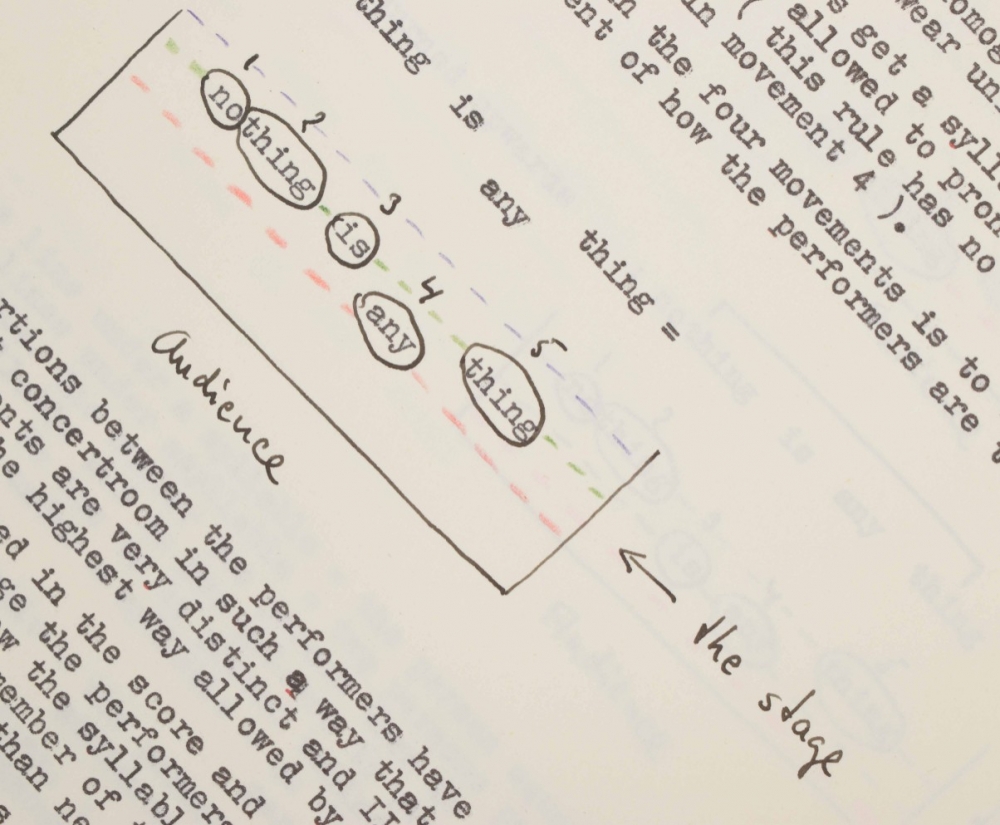 omog
wear uni
s get a syll
allowed to pron
( this rule has no
in movement 4 ).
n the four movements is to
ent of how the performers are t
thing is any thing =
1 2 3 4 5
no thing is any thing
Audience
the stage
rtions between the performers have
t concertroom in such a way that
ents are very distinct and II
he highest way allowed by
ed in the score and
ge the performers
w the syllabl
ember of
than ne